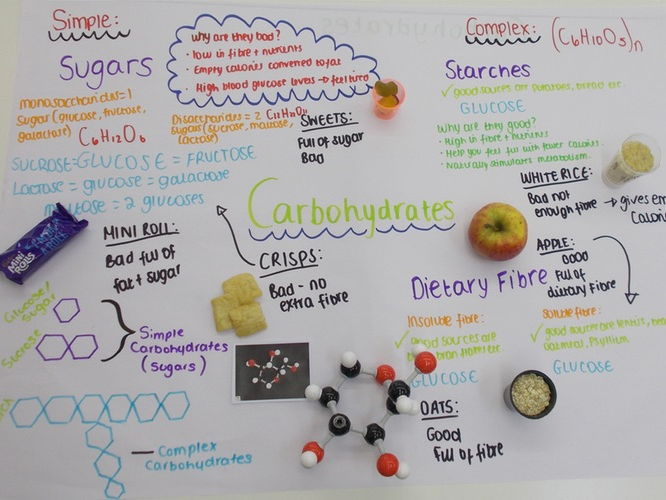 Simple:
Sugars
monosaccharides=1
Sugar (glucose, fructose,
galactose)
C6H12O6
Why are they bad?
• low in fibre + nutrients
• Empty calories converted to fat
• High blood glucose levels → feel tired
Disaccharides = 2
sugars (sucrose, maltose,
lactose)
SUCROSE=GLUCOSE = FRUCTOSE
Lactose = glucose = galactose
= 2 glucoses
SWEETS:
Full of sugar
Bad
Complex:
(C6H10O5)n
Starches
✓ good sources are potatoes, bread etc.
GLUCOSE
Why are they good?
• High in fibre + nutrients
• Help you feel full with fewer calories.
• Naturally stimulates metabolism.
WHITE RICE:
Bad not
enough fibre → gives
Carbohydrates
MINI ROLLS
MINI ROLL:
Bad full of
fat + sugar
CRISPS:
Bad - no
extra fibre
APPLE:
Full of
dietary fibre
Dietary Fibre
Insoluble fibre:
good sources are
GLUCOSE
Soluble fibre:
✓ good source are lentils,
oatmeal, Psyllium
GLUCOSE
OATS:
Good
Full of fibre
Glucose/
sugar
Sucrose
Simple
Carbohydrates
(sugars)
— Complex
Carbohydrates